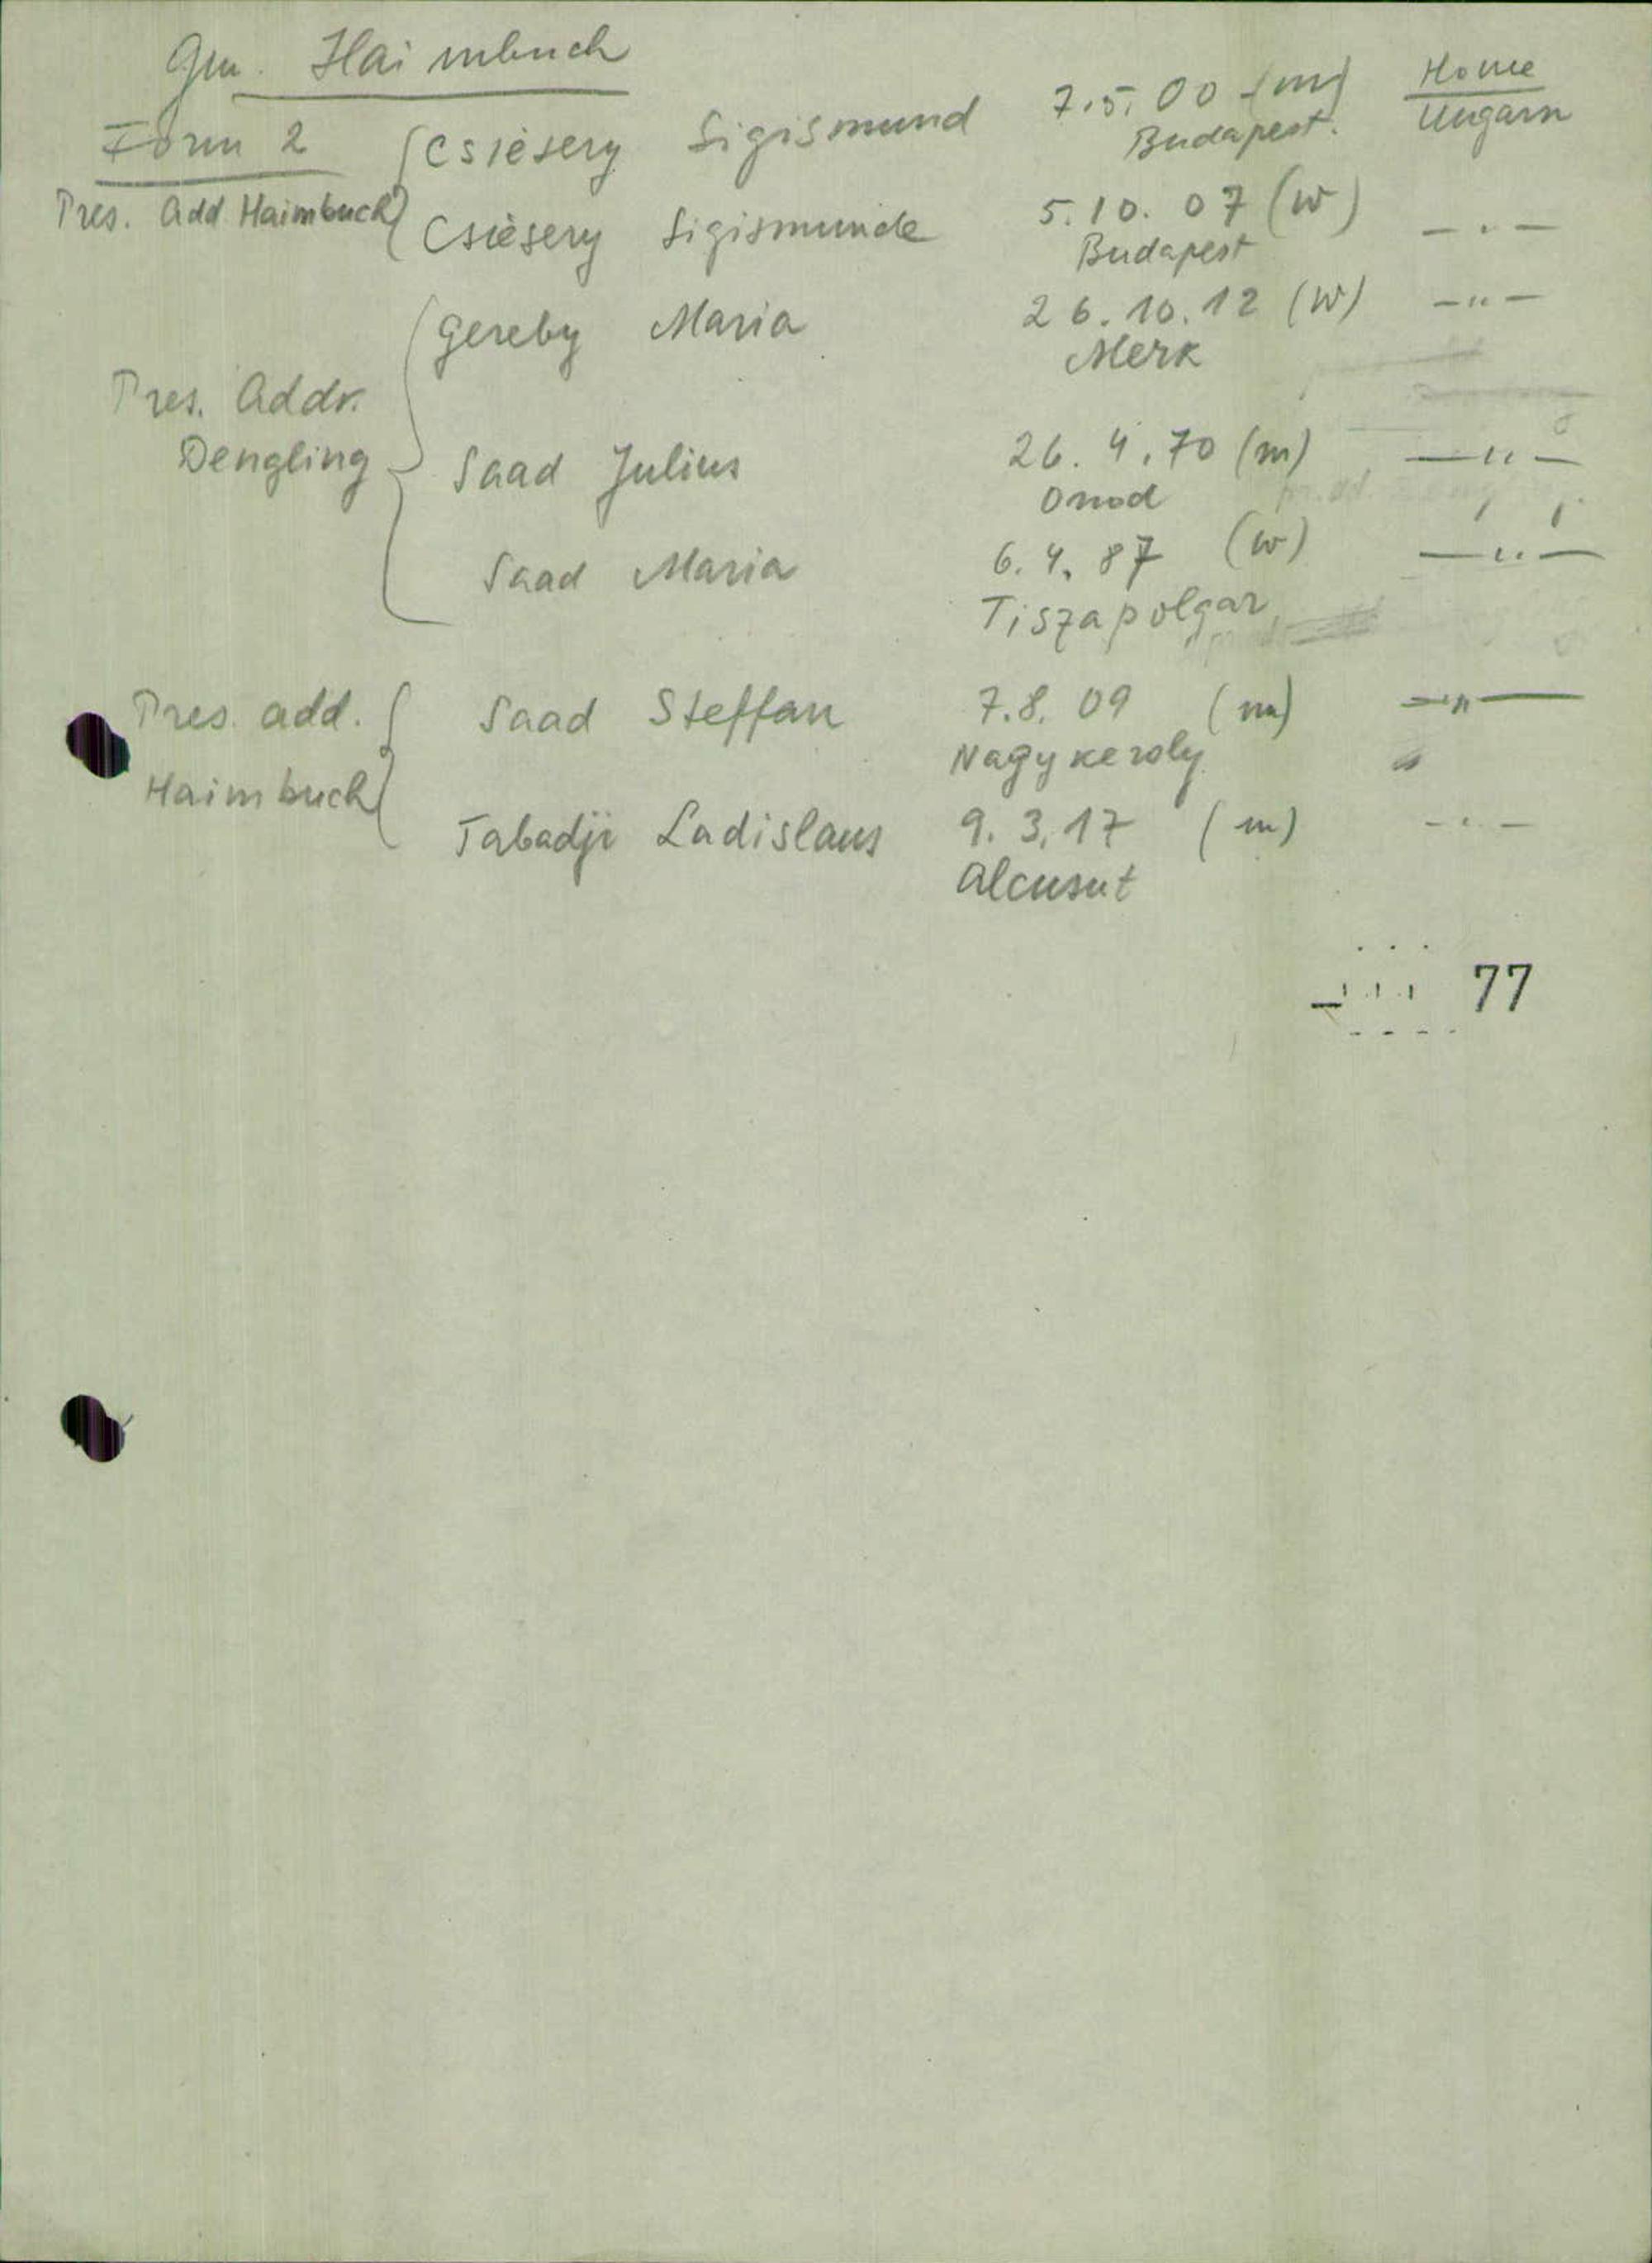 Gm. Haimbuch
Form 2 Csièsery Sigismund 7.5.00 (m) Home
Budapest. Ungarn
Pres. Add Haimbuch Csièsery Sigismunde 5.10.07 (w) — . —
Budapest
Gereby Maria 26.10.12 (W) — " —
Merk
Pres. Addr.
Dengling Saad Julius 26.4.70 (m) — " —
Onod
Saad Maria 6.4.87 (w) — " —
Tiszapolgar
Pres. add. Saad Steffan 7.8.09 (m) — " —
Nagykeroly
Haimbuch Tabadji Ladislaus 9.3.17 (m) — . —
Alcusut
77